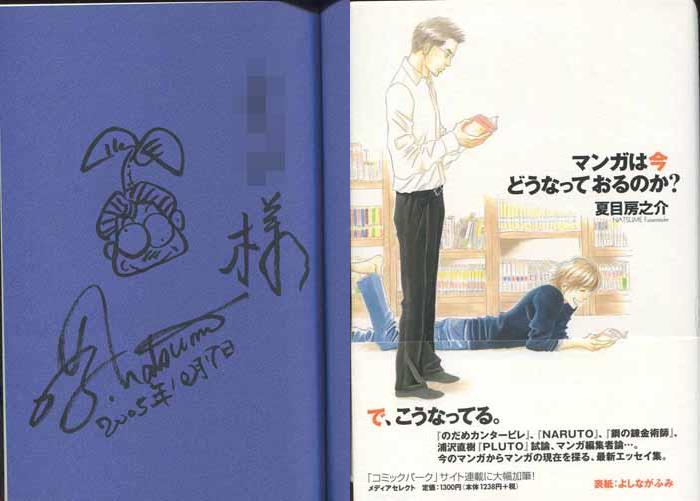 様
F. natsume
2005年10月17日
マンガは今
どうなっておるのか?
夏目房之介
NATSUME Fusanosuke
で、こうなってる。
『のだめカンタービレ』、『NARUTO』、『鋼の錬金術師』、
浦沢直樹『PLUTO』試論、マンガ編集者論…。
今のマンガからマンガの現在を探る、最新エッセイ集。
「コミックパーク」サイト連載に大幅加筆!
メディアセレクト 定価:1300円(本体1238円+税)
表紙:よしながふみ